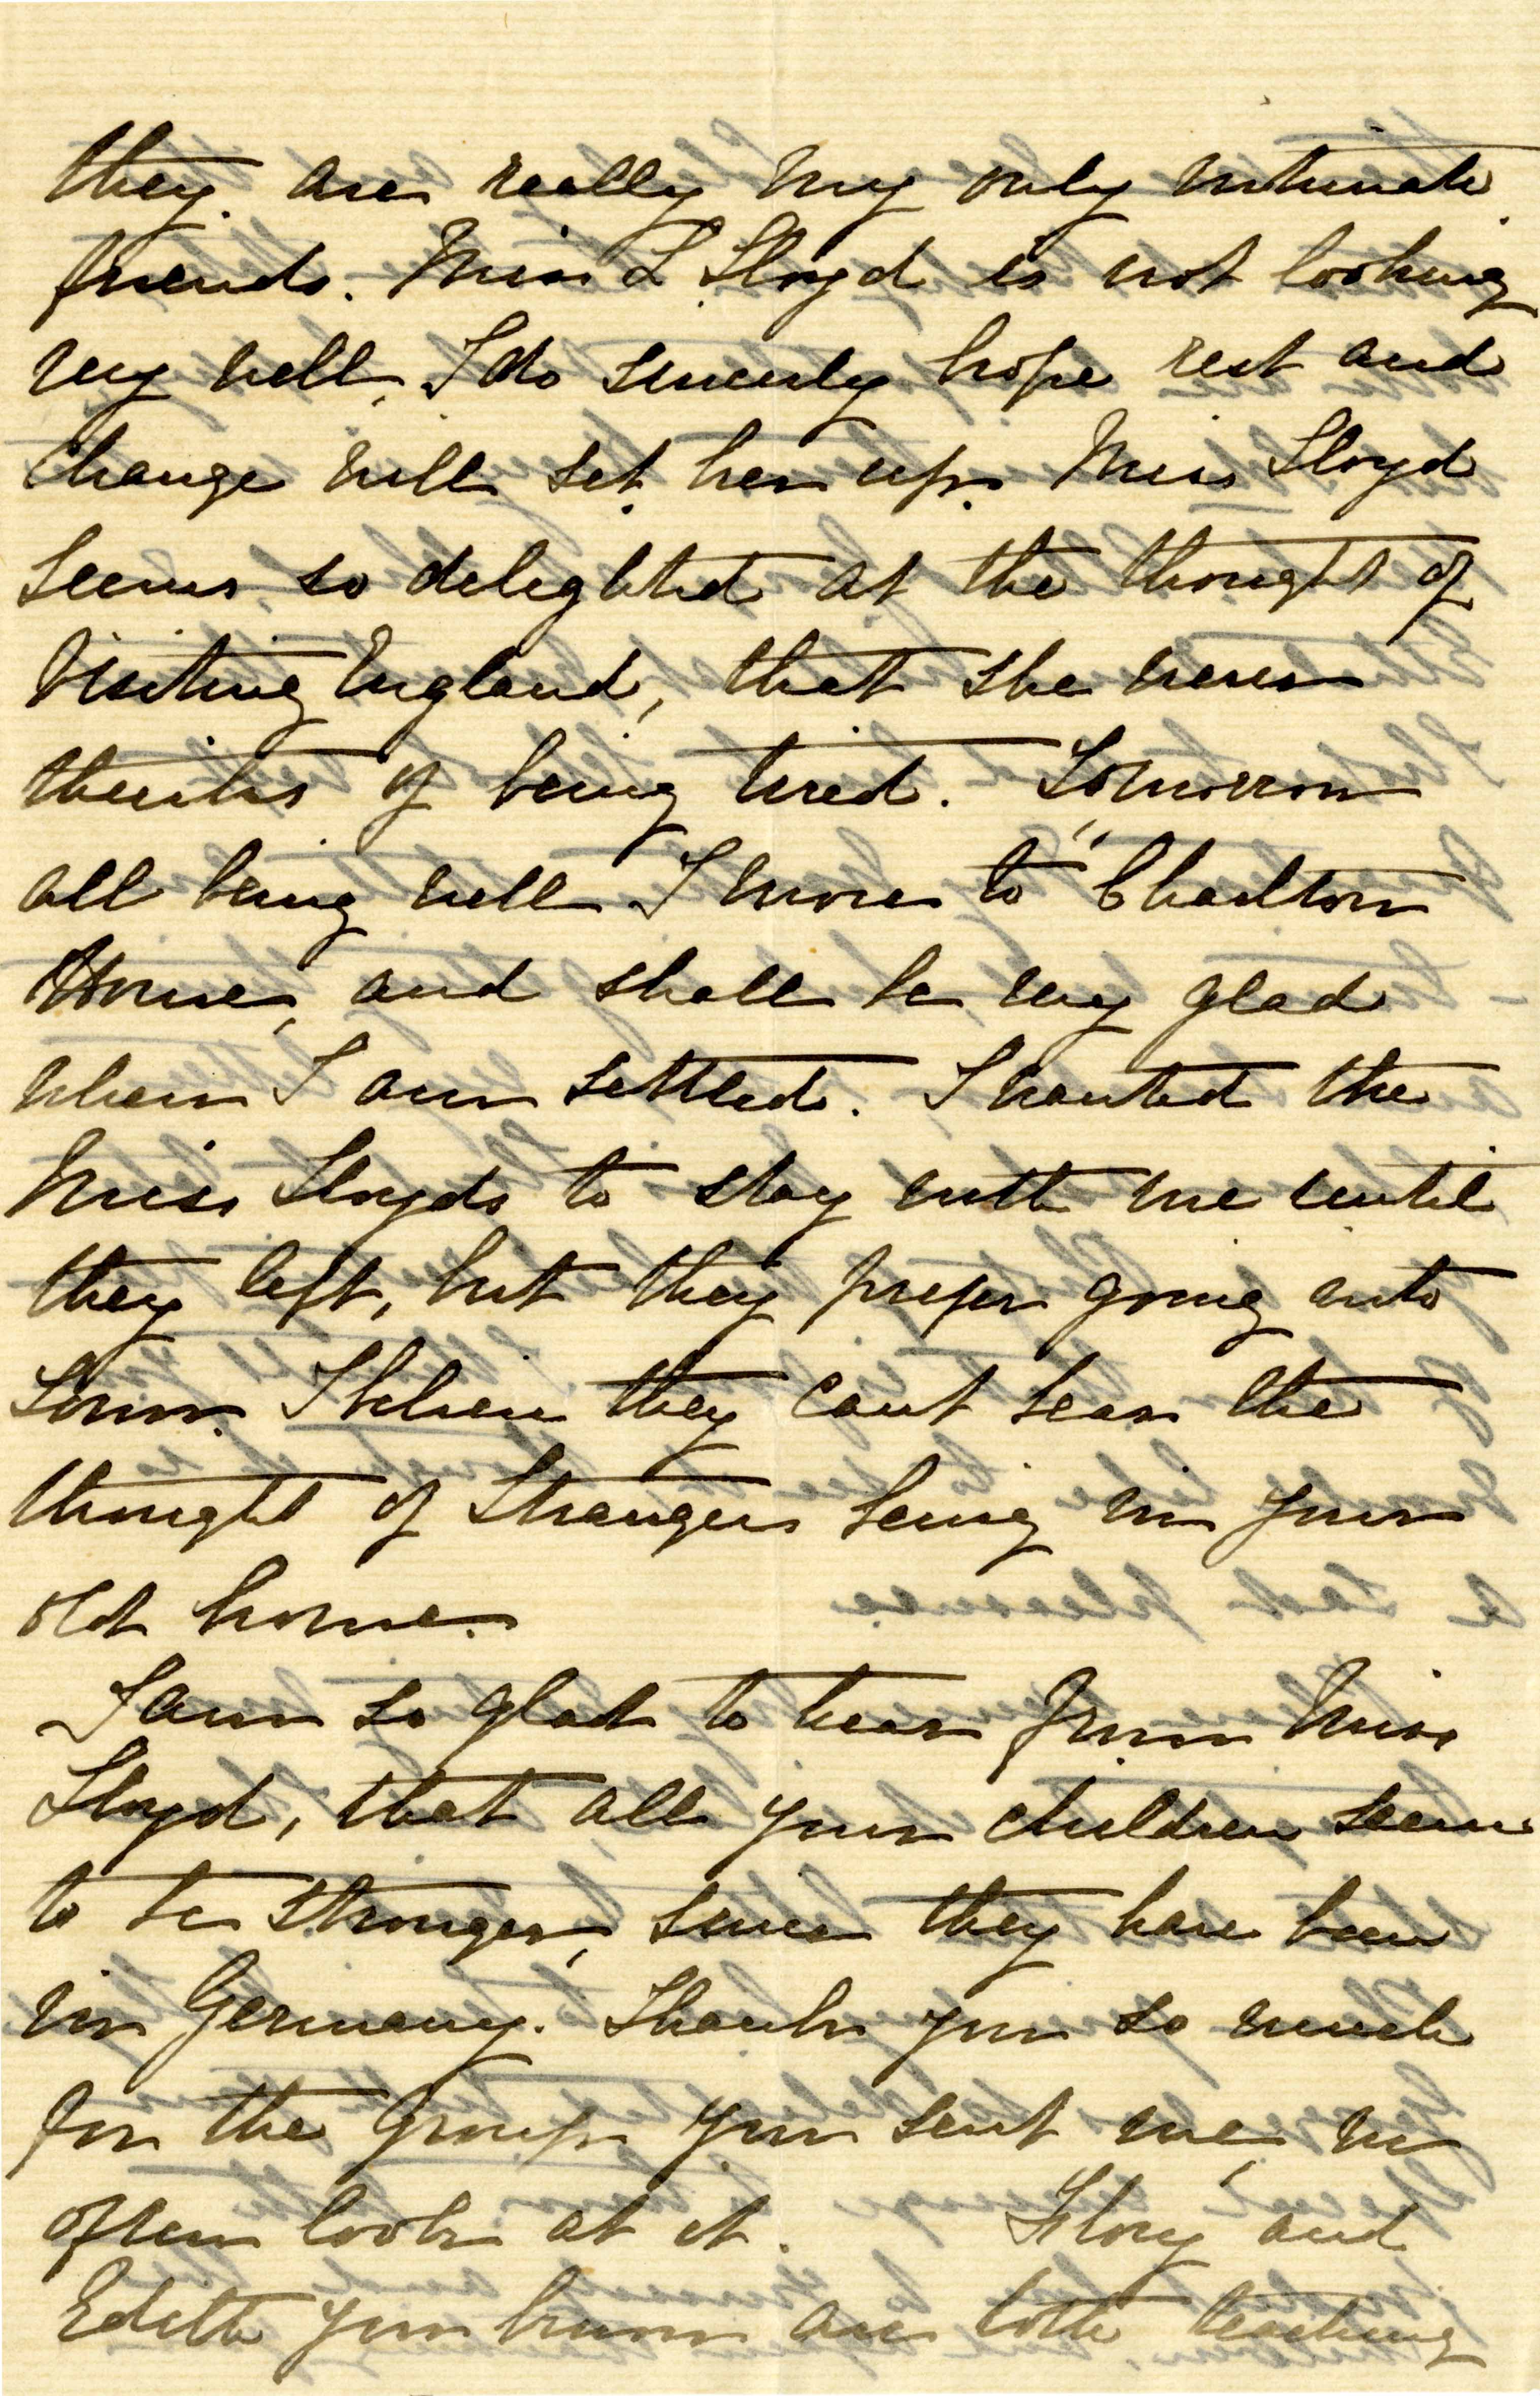 they are really my only intimate
friends. Miss L Lloyd is not looking
very well, I do sincerely hope rest and
change will set her up. Miss Lloyd
seems so delighted at the thought of
visiting England, that she never
thinks of being tired. Tomorrow
all being well I move to "Charlton
House, and shall be very glad
when I am settled. I wanted the
Miss Lloyds to stay with me until
they left, but they prefer going into
Town. I believe they cant bear the
thought of Strangers being in your
old home.
I am so glad to hear from Miss
Lloyd, that all your children seem
to be stronger, since they have been
in Germany. Thank you so much
for the Group you sent me, we
often look at it. Flory and
Edith you know are both teaching